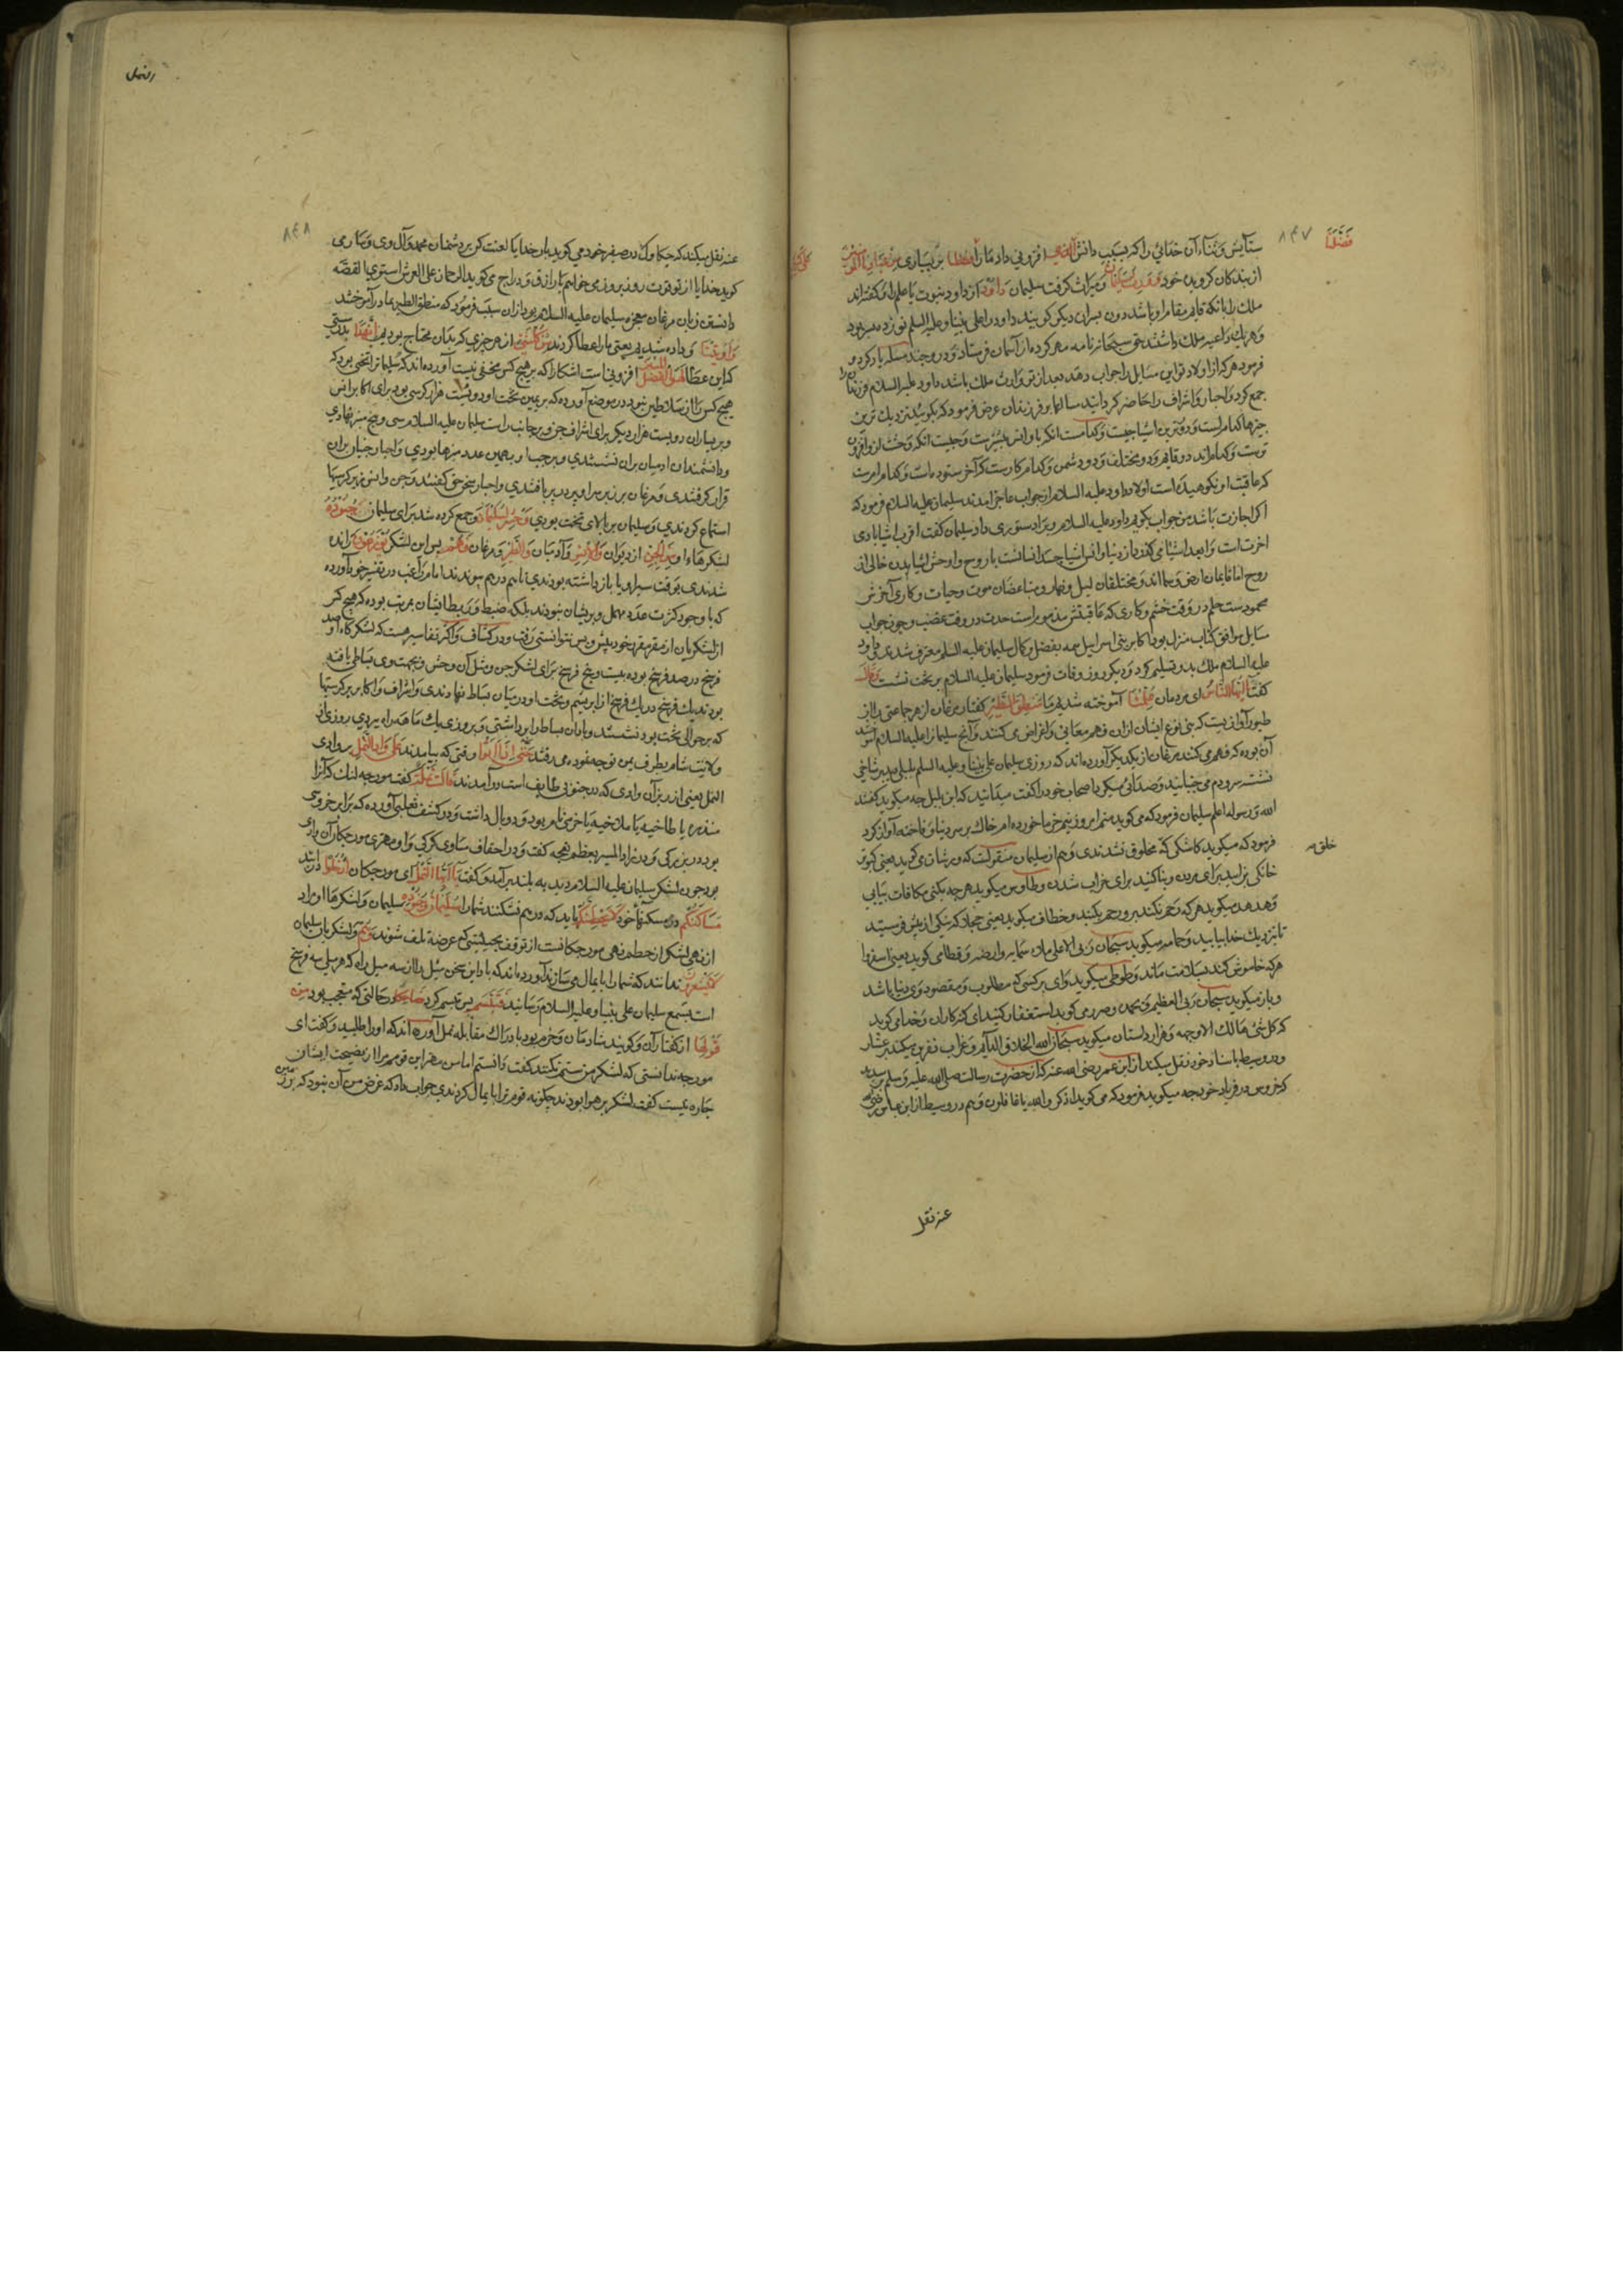 ۸۴۷
فَضَّلَنَا
ستایش و ثناء آن خدائی را که بسبب دانش الَّذِي افزونی داد ما را فَضَّلَنَا بر بسیاری مِنْ عِبَادِهِ الْمُؤْمِنِينَ
از بندکان کرویده خود وَوَرِثَ سُلَيْمَانُ و میراث کرفت سلیمان دَاوُدَ از داود نبوت یا علم او کفته‌اند
ملک را بآنکه قایم مقام او باشد دون پسران دیکر کویند داود را علی نبینا و علیه السلم نوزده پسر بود
و هر یک داعیه ملک داشتند حق سبحانه نامه مهر کرده از آسمان فرستاد و در و چند مسئله یاد کرده و
فرمود هر که از اولاد تو این مسایل را جواب دهد بعد از تو وارث ملک باشد داود علیه السلام فرزندان را
جمع کرد و احبار و اشراف را حاضر کردانید مسائل را بر فرزندان عرض فرمود که بکویید نزدیک ترین
چیزها کدام است و دورترین اشیا چیست و کدامست آنکه با و انس بیشترست و چیست آنکه وحشت از و افزون
ترست و کدام‌اند دو قایم و دو مختلف و دو دشمن و کدام کارست که آخر ستوده است و کدام امرست
که عاقبت او نکوهیده است اولاد داود علیه السلام از جواب عاجز آمدند سلیمان علیه السلام فرمود که
اکر اجازت باشد من جواب بکویم داود علیه السلام ویرا دستوری داد سلیمان کفت اقرب اشیا بآدمی
آخرت است و ابعد اشیا می کذرد از دنیا و انس اشیا جسد انسانست با روح و اوحش اشیا بدن خالی از
روح اما قایمان ارض و سما اند و مختلفان لیل و نهار و متباغضان موت و حیات و کاری آخرش
محمودست حلم در وقت خشم و کاری که عاقبتش مذمومراست حدت در وقت غضب و چون جواب
مسایل موافق کتاب منزل بود اکابر بنی اسرائیل همه بفضل و کمال سلیمان علیه السلم معترف شدند و داود
علیه السلام ملک بدو تسلیم کرد و دیکر روز وفات فرمود سلیمان علیه السلام بر تخت نشست وَقَالَ
کفت يَا أَيُّهَا النَّاسُ ای مردمان عُلِّمْنَا آموخته شدیم ما مَنطِقَ الطَّيْرِ کفتار مرغان از هر جماعتی را از
طیور آوازیست که بنی نوع ایشان از ان فهم معانی و اغراض می کنند و آنچ سلیمان را علیه السلام آموختند
آن بوده که فهم می کند مرغان از یکدیکر آورده‌اند که روزی سلیمان علی نبینا و علیه السلم بلبلی دید بر شاخی
نشسته سر و دم می جنبانید و صدائی میکرد اصحاب خود را کفت میدانید که این بلبل چه میکوید کفتند
الله و رسوله اعلم سلیمان فرمود که می کوید منم امروز نیم خرما خورده‌ام خاک بر سر دنیا و فاخته آواز کرد
فرمود که میکوید کاشکی که مخلوق نشدندی و هم از سلیمان منقولست که ورشان می کوید یعنی کبوتر
خلق مه
خانکی بزایید برای مردن و بنا کنید برای خراب شدن و طاوس میکوید هر چه بکنی مکافات بیابی
و هدهد میکوید هر که رحم نکند برو رحم نکنند و خطاف میکوید یعنی حجاز که نیکی از پیش فرستید
تا نزدیک خدا بیابید و حمامه میکوید سبحان ربی الاعلی ملاء سمایه و ارضه و قطا می کوید یعنی اسفرود
هر که خاموش کند بسلامت ماند و طوطی میکوید وای بر کسی که مطلوب و مقصود وی دنیا باشد
و باز میکوید سبحان ربی العظیم و بحمده و صرد می کوید استغفار کنید ای کنه کاران و حدا می کوید
که کل شیء هالک الا وجهه و هزار داستان میکوید سبحان الله الخلاق الدایم و غراب نفرین میکند بر عشار
و در وسیط باسناد خود نقل میکند از ابن عمر رضی الله عنه که از حضرت رسالت صلی الله علیه و سلم پرسیدند
که خروس در فریاد خود چه میکوید فرمود که می کوید اذکروا الله یا غافلون و هم در وسیط از ابن عباس رضی الله
عنه نقل
النمل
۸۴۸
عنه نقل میکند که چکاوک در صفیر خود می کوید بار خدایا لعنت کن بر دشمنان محمد و آل وی و سار می
کوید خدایا از تو قوت روز بروز می خواهم یا رازق و دراج می کوید الرحمان علی العرش استوی القصّه
دانستن زبان مرغان معجزه سلیمان علیه السلام بود ازان سبب فرمود که منطق الطیر بما در آموختند
وَأُوتِينَا و داده شدیم یعنی ما را عطا کردند مِن كُلِّ شَيْءٍ از هر چیزی که بدان محتاج بودیم إِنَّ هَٰذَا بدرستی
که این عطا لَهُوَ الْفَضْلُ الْمُبِينُ افزونیاست اشکارا که بر هیچ کس مخفی نیست آورده‌اند که سلیمان را تختی بود که
هیچ کس را از سلاطین نبود در موضع آورده که بر یمین تخت او دویست هزار کرسی بود برای اکابر انس
و بر یسار آن دویست هزار دیکر برای اشراف جن و بر جانب راست سلیمان علیه السلام سی و پنج منبر نهادی
و دانشمندان ادمیان بران نشستندی و بر چپ او بهمین عدد منبرها بودی و احبار جنیان بران
قرار کرفتندی و مرغان بر زبر سر او پر در پر بافتندی و احبار سخن حق کفتند و جن و انس زیر کرسیها
استماع کردندی و سلیمان بر بالای تخت بودی وَحُشِرَ لِسُلَيْمَانَ و جمع کرده شد برای سلیمان جُنُودُهُ
لشکرهاء او مِنَ الْجِنِّ از دیوان وَالْإِنسِ و آدمیان وَالطَّيْرِ و مرغان فَهُمْ پس این لشکر يُوزَعُونَ رانده
شدندی بوقت سیر او یا باز داشته بودندی تا بهم در هم پیوندند امام راغب در تفسیر خود آورده
که با وجود کثرت عدد مهمل و پریشان نبودند بلکه ضبط و ربط ایشان بمرتبه بوده که هیچ کس
از لشکریان از مقر مقرره خود پیش و پس نتوانستی رفت و در کشاف و اکثر تفاسیر هست که لشکرکاه او صد
فرسخ در صد فرسخ بوده بیست و پنج فرسخ برای لشکر جن و مثل آن وحش و بجهت وی بساطی بافته
بودند یک فرسخ در یک فرسخ از ابریشم و تخت او در میان بساط نهادندی و اشراف و اکابر بر کرسیها
که بر حوالی تخت بود نشستند و باد آن بساط را برداشتی و بروزی یک ماهه راه ببردی روزی از
ولایت شام بطرف یمن توجه نموده می رفتند حَتَّىٰ إِذَا أَتَوْا وقتی که بیامدند عَلَىٰ وَادِ النَّمْلِ بر وادی
النمل یعنی از زبر آن وادی که در جنوبی طایف است در آمدند قَالَتْ نَمْلَةٌ کفت مورچه لنک که آنرا
منذره یا طاخیه یا ملاخیه یا خرمی نام بود و دو بال داشت و در کشف ثعلبی آورده که برابر خروسی
بوده در بزرکی و در زاد المسیر بعظم نعجه کفت و در احقاف مساوی کرکی و او مهتر مورچکان آن وادی
بود چون لشکر سلیمان علیه السلام دید به بلندی برآمد و کفت يَا أَيُّهَا النَّمْلُ ای مورچکان ادْخُلُوا در آیید
مَسَاكِنَكُمْ در مسکنهاء خود لَا يَحْطِمَنَّكُمْ باید که در هم نشکنند شما را سُلَيْمَانُ وَجُنُودُهُ سلیمان و لشکرها او مراد
ازین نهی لشکر از حطم نهی مورچکانست از توقف بحیثیتی که عرضه تلف شوند وَهُمْ و لشکریان سلیمان
لَا يَشْعُرُونَ ندانند که شما را پایمال می سازند آورده‌اند که باد این سخن میل را از سه میل راه که هر میلی سه فرسخ
است بسمع سلیمان علی نبینا و علیه السلام رسانید فَتَبَسَّمَ پس تبسم کرد ضَاحِكًا در حالتی که متعجب بود مِّن
قَوْلِهَا از کفتار آن و کویند شادمان و خرم بود بادراک مقابله نمل آورده‌اند که او را طلبید و کفت ای
مورچه ندانستی که لشکر من ستم نکنند کفت دانستم اما من مهتر این قومم مرا از نصیحت ایشان
چاره نیست کفت لشکر بر هوا بودند چکونه قوم ترا پایمال کردندی جواب داد که غرض من آن نبود که بر زمین